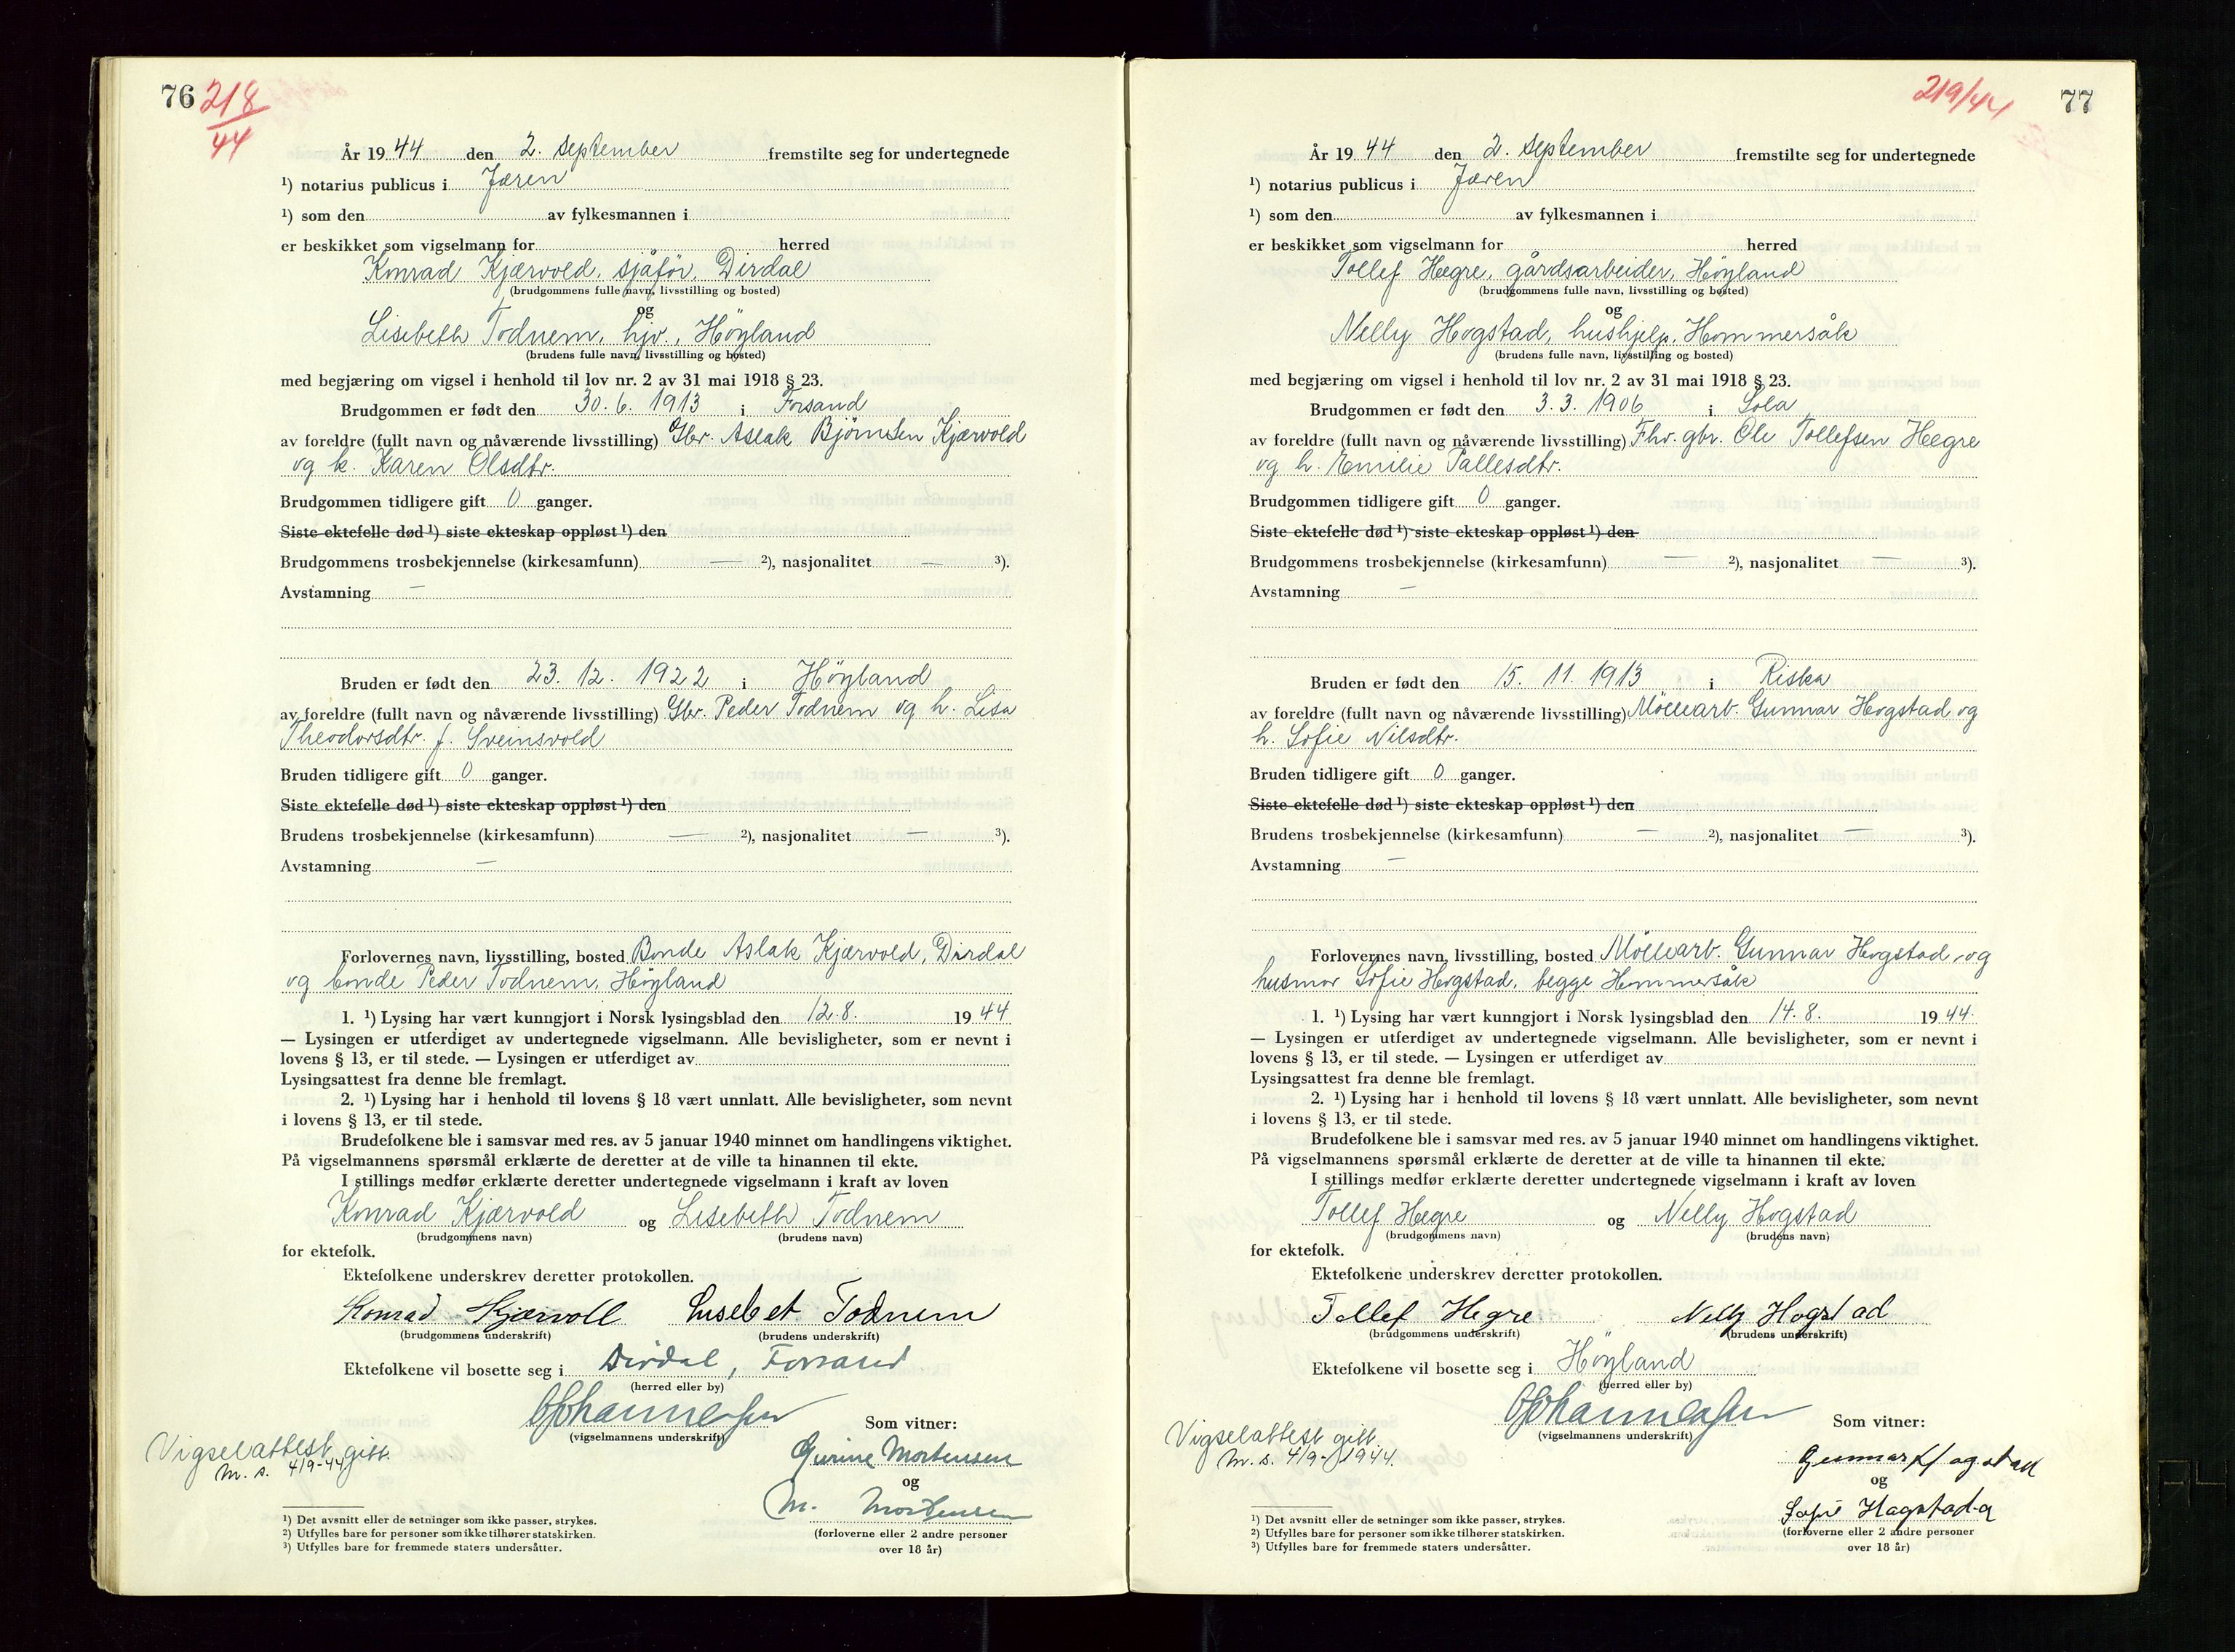 76 218/44
År 1944 den 2. september fremstilte seg for undertegnede
¹) notarius publicus i Jæren
¹) som den av fylkesmannen i
er beskikket som vigselmann for herred
Konrad Kjærvold, sjåfør, Dirdal
(brudgommens fulle navn, livsstilling og bosted)
og
Lisebeth Todnem, hjv., Höyland
(brudens fulle navn, livsstilling og bosted)
med begjæring om vigsel i henhold til lov nr. 2 av 31 mai 1918 § 23.
Brudgommen er født den 30. 6. 1913 i Forsand
av foreldre (fullt navn og nåværende livsstilling) Gbr. Aslak Bjørnsen Kjærvold
og k. Karen Olsdtr.
Brudgommen tidligere gift 0 ganger.
Siste ektefelle død ¹) siste ekteskap oppløst ¹) den
Brudgommens trosbekjennelse (kirkesamfunn) — ²), nasjonalitet — ³).
Avstamning —
Bruden er født den 23. 12. 1922 i Höyland
av foreldre (fullt navn og nåværende livsstilling) Gbr. Peder Todnem og h. Lisa
Theodorsdtr. f. Sveinsvold
Bruden tidligere gift 0 ganger.
Siste ektefelle død ¹) siste ekteskap oppløst ¹) den
Brudens trosbekjennelse (kirkesamfunn) — ²), nasjonalitet — ³).
Avstamning —
Forlovernes navn, livsstilling, bosted Bonde Aslak Kjærvold, Dirdal
og bonde Peder Todnem, Höyland
1. ¹) Lysing har vært kunngjort i Norsk lysingsblad den 12.8. 1944
— Lysingen er utferdiget av undertegnede vigselmann. Alle bevisligheter, som er nevnt i
lovens § 13, er til stede. — Lysingen er utferdiget av
Lysingsattest fra denne ble fremlagt.
2. ¹) Lysing har i henhold til lovens § 18 vært unnlatt. Alle bevisligheter, som nevnt
i lovens § 13, er til stede.
Brudefolkene ble i samsvar med res. av 5 januar 1940 minnet om handlingens viktighet.
På vigselmannens spørsmål erklærte de deretter at de ville ta hinannen til ekte.
I stillings medfør erklærte deretter undertegnede vigselmann i kraft av loven
Konrad Kjærvold og Lisebeth Todnem
(brudgommens navn) (brudens navn)
for ektefolk.
Ektefolkene underskrev deretter protokollen.
Konrad Kjærvoll Lisebet Todnem
(brudgommens underskrift) (brudens underskrift)
Ektefolkene vil bosette seg i Dirdal, Forsand
(herred eller by)
Som vitner:
(vigselmannens underskrift)
Vigselattest gitt.
m. s. 4/9-44
Gurine Mortensen
og
M. Mortensen
(forloverne eller 2 andre personer
over 18 år)
¹) Det avsnitt eller de setninger som ikke passer, strykes.
²) Utfylles bare for personer som ikke tilhører statskirken.
³) Utfylles bare for fremmede staters undersåtter.
219/44 77
År 1944 den 2. september fremstilte seg for undertegnede
¹) notarius publicus i Jæren
¹) som den av fylkesmannen i
er beskikket som vigselmann for herred
Tollef Hegre, gårdsarbeider, Höyland
(brudgommens fulle navn, livsstilling og bosted)
og
Nelly Hogstad, hushjelp, Hommersåk
(brudens fulle navn, livsstilling og bosted)
med begjæring om vigsel i henhold til lov nr. 2 av 31 mai 1918 § 23.
Brudgommen er født den 3. 3. 1906 i Sola
av foreldre (fullt navn og nåværende livsstilling) Fhv. gbr. Ole Tollefsen Hegre
og h. Emilie Pallesdtr.
Brudgommen tidligere gift 0 ganger.
Siste ektefelle død ¹) siste ekteskap oppløst ¹) den
Brudgommens trosbekjennelse (kirkesamfunn) — ²), nasjonalitet — ³).
Avstamning —
Bruden er født den 15. 11. 1913 i Riska
av foreldre (fullt navn og nåværende livsstilling) Möllearb. Gunnar Hogstad og
h. Sofie Nilsdtr.
Bruden tidligere gift 0 ganger.
Siste ektefelle død ¹) siste ekteskap oppløst ¹) den
Brudens trosbekjennelse (kirkesamfunn) — ²), nasjonalitet — ³).
Avstamning —
Forlovernes navn, livsstilling, bosted Möllearb. Gunnar Hogstad, og
husmor Sofie Hogstad, begge Hommersåk
1. ¹) Lysing har vært kunngjort i Norsk lysingsblad den 14. 8. 1944.
— Lysingen er utferdiget av undertegnede vigselmann. Alle bevisligheter, som er nevnt i
lovens § 13, er til stede. — Lysingen er utferdiget av
Lysingsattest fra denne ble fremlagt.
2. ¹) Lysing har i henhold til lovens § 18 vært unnlatt. Alle bevisligheter, som nevnt
i lovens § 13, er til stede.
Brudefolkene ble i samsvar med res. av 5 januar 1940 minnet om handlingens viktighet.
På vigselmannens spørsmål erklærte de deretter at de ville ta hinannen til ekte.
I stillings medfør erklærte deretter undertegnede vigselmann i kraft av loven
Tollef Hegre og Nelly Hogstad
(brudgommens navn) (brudens navn)
for ektefolk.
Ektefolkene underskrev deretter protokollen.
Tollef Hegre Nelly Hogstad
(brudgommens underskrift) (brudens underskrift)
Ektefolkene vil bosette seg i Höyland
(herred eller by)
Som vitner:
(vigselmannens underskrift)
Vigselattest gitt.
m. s. 4/9-1944.
Gunnar Hogstad
og
Sofie Hogstad
(forloverne eller 2 andre personer
over 18 år)
¹) Det avsnitt eller de setninger som ikke passer, strykes.
²) Utfylles bare for personer som ikke tilhører statskirken.
³) Utfylles bare for fremmede staters undersåtter.